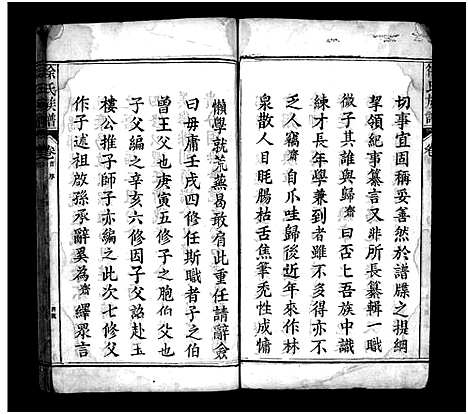 切事宜固稱妥善然於譜牒之提綱
挈領紀事纂言又非所長纂輯一職
微子其誰與歸濟曰否上吾族中識
練才長年學兼到者不啻晨星濟何
乏人竊濟自爪哇歸後近年在林
泉散人目眊腸枯舌焦筆禿性成慵
懶學就荒蕪曷敢肩此重任請辭僉
曰毋庸壬戌四修任斯職者子之伯
曾王父也庚寅五修子之胞伯父也
子父編之辛亥六修因子父詒赴玉
樓公推子師子亦編之此次七修父
作子述祖啟孫承辭奚為濟繹眾言
徐氏族譜
卷首 序
徐氏族譜
卷